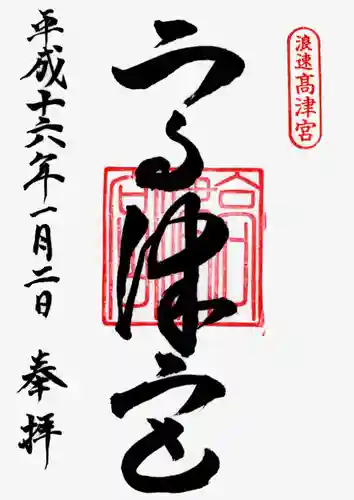 浪速高津宮
高津宮
平成十六年一月二日 奉拝